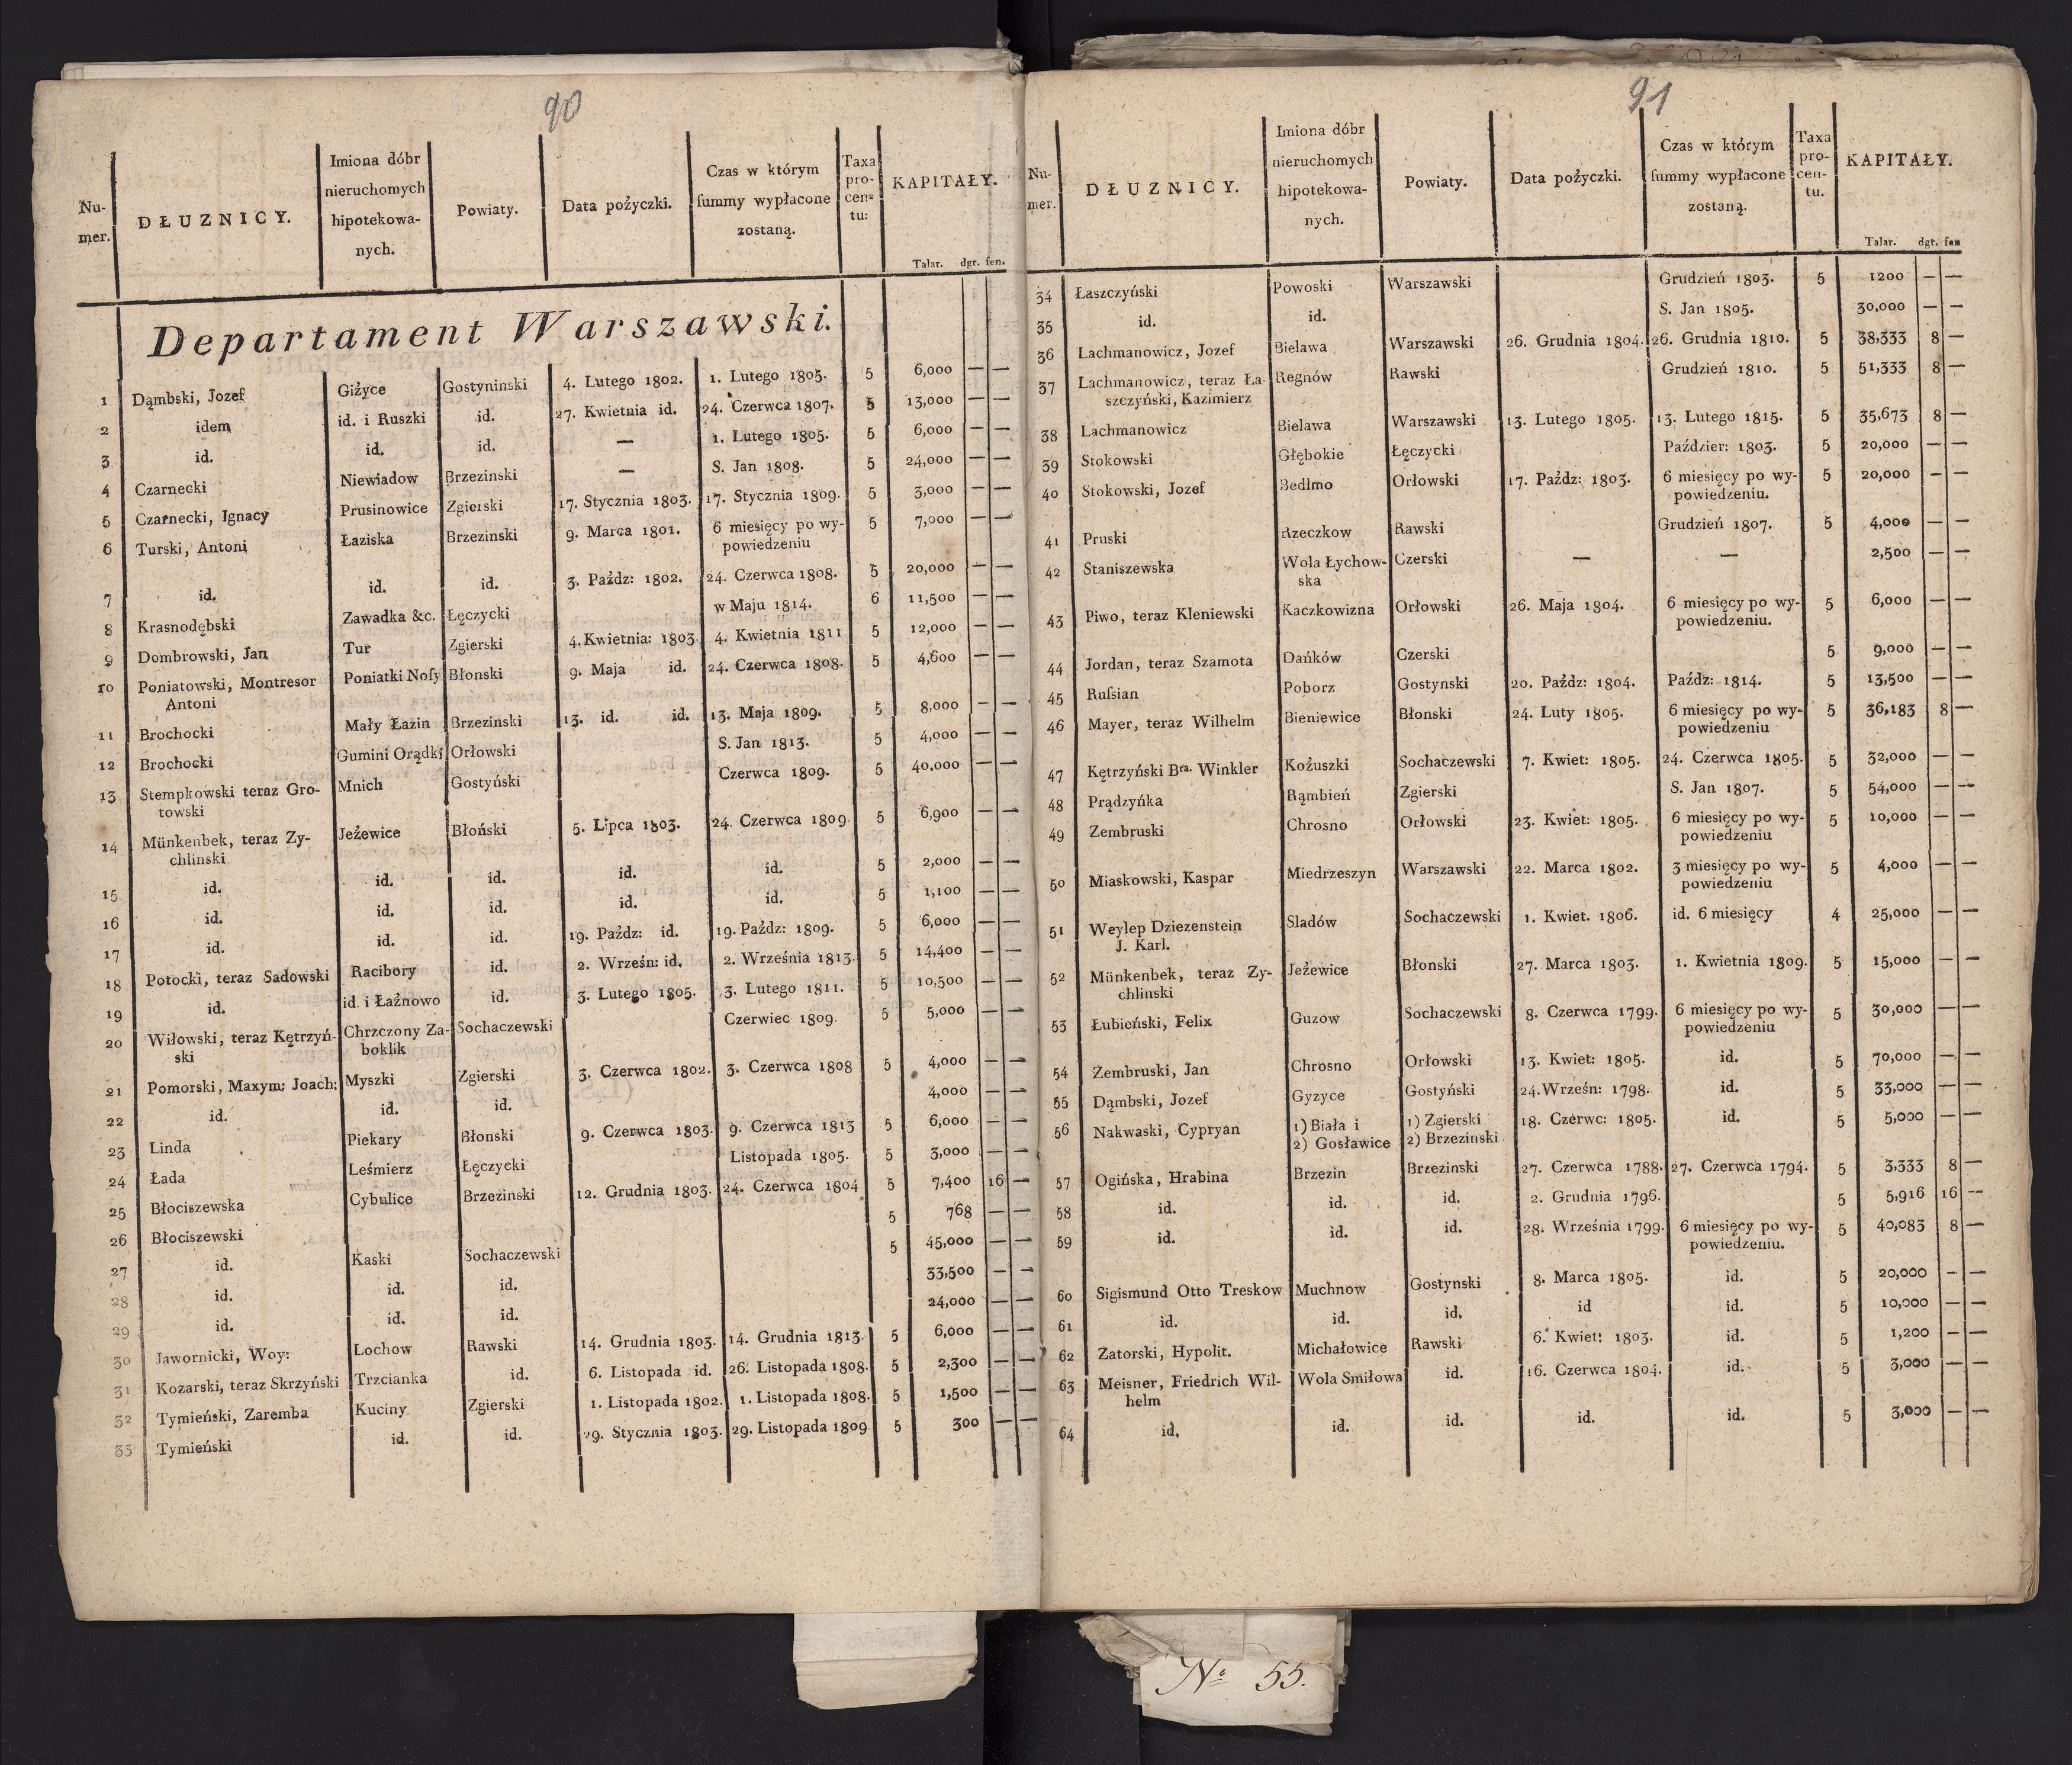 90
Nu-mer. DŁUZNICY. Imiona dóbr nieruchomych hipotekowa-nych. Powiaty. Data pożyczki. Czas w którym ſummy wypłacone zostaną. Taxa pro-cen-tu: KAPITAŁY. Talar. dgr. fen.
Departament Warszawski.
1 Dąmbski, Jozef Giżyce Gostyninski 4. Lutego 1802. 1. Lutego 1805. 5 6,000 — —
2 idem id. i Ruszki id. 27. Kwietnia id. 24. Czerwca 1807. 5 13,000 — —
3 id. id. id. — 1. Lutego 1805. 5 6,000 — —
4 Czarnecki Niewiadow Brzezinski — S. Jan 1808. 5 24,000 — —
5 Czarnecki, Ignacy Prusinowice Zgierski 17. Stycznia 1803. 17. Stycznia 1809. 5 3,000 — —
6 Turski, Antoni Łaziska Brzezinski 9. Marca 1801. 6 miesięcy po wy- 5 7,000 — —
powiedzeniu
7 id. id. id. 3. Paźdz: 1802. 24. Czerwca 1808. 5 20,000 — —
8 Krasnodębski Zawadka &c. Łęczycki w Maju 1814. 6 11,500 — —
9 Dombrowski, Jan Tur Zgierski 4. Kwietnia: 1803 4. Kwietnia 1811 5 12,000 — —
10 Poniatowski, Montresor Poniatki Noſy Błonski 9. Maja id. 24. Czerwca 1808. 5 4,600 — —
Antoni
11 Brochocki Mały Łażin Brzezinski 13. id. id. 13. Maja 1809. 5 8,000 — —
12 Brochocki Gumini Orądki Orłowski S. Jan 1813. 5 4,000 — —
13 Stempkowski teraz Gro- Mnich Gostyński Czerwca 1809. 5 40,000 — —
towski
14 Münkenbek, teraz Zy- Jeżewice Błoński 5. Lipca 1803. 24. Czerwca 1809. 5 6,900 — —
chlinski
15 id. id. id. id. id. 5 2,000 — —
16 id. id. id. id. id. 5 1,100 — —
17 id. id. id. 19. Paźdz: id. 19. Paźdz: 1809. 5 6,000 — —
18 Potocki, teraz Sadowski Racibory id. 2. Wrześn: id. 2. Września 1813 5 14,400 — —
19 id. id. i Łaźnowo id. 3. Lutego 1805. 3. Lutego 1811. 5 10,500 — —
20 Wiłowski, teraz Kętrzyń- Chrzczony Za- Sochaczewski Czerwiec 1809. 5 5,000 — —
ski boklik
21 Pomorski, Maxym: Joach: Myszki Zgierski 3. Czerwca 1802. 3. Czerwca 1808 5 4,000 — —
22 id. id. id. 4,000 — —
23 Linda Piekary Błonski 9. Czerwca 1803. 9. Czerwca 1813 5 6,000 — —
24 Łada Leśmierz Łęczycki Listopada 1805. 5 3,000 — —
25 Błociszewska Cybulice Brzezinski 12. Grudnia 1803. 24. Czerwca 1804 5 7,400 16 —
26 Błociszewski 5 768 — —
27 id. Kaski Sochaczewski 5 45,000 — —
28 id. id. id. 33,500 — —
29 id. id. id. 24,000 — —
30 Jawornicki, Woy: Lochow Rawski 14. Grudnia 1803. 14. Grudnia 1813. 5 6,000 — —
31 Kozarski, teraz Skrzyński Trzcianka id. 6. Listopada id. 26. Listopada 1808. 5 2,300 — —
32 Tymieński, Zaremba Kuciny Zgierski 1. Listopada 1802. 1. Listopada 1808. 5 1,500 — —
33 Tymieński id. id. 29. Stycznia 1803. 29. Listopada 1809 5 300 — —
91
Nu-mer. DŁUZNICY. Imiona dóbr nieruchomych hipotekowa-nych. Powiaty. Data pożyczki. Czas w którym ſummy wypłacone zostaną. Taxa pro-cen-tu. KAPITAŁY. Talar. dgr. fen
34 Łaszczyński Powoski Warszawski Grudzień 1803. 5 1200 — —
35 id. id. S. Jan 1805. 30,000 — —
36 Lachmanowicz, Jozef Bielawa Warszawski 26. Grudnia 1804. 26. Grudnia 1810. 5 38,333 8 —
37 Lachmanowicz, teraz Ła- Regnów Rawski Grudzień 1810. 5 51,333 8 —
szczyński, Kazimierz
38 Lachmanowicz Bielawa Warszawski 13. Lutego 1805. 13. Lutego 1815. 5 35,673 8 —
39 Stokowski Głębokie Łęczycki Paździer: 1803. 5 20,000 — —
40 Stokowski, Jozef Bedlmo Orłowski 17. Paźdz: 1803. 6 miesięcy po wy- 5 20,000 — —
powiedzeniu.
41 Pruski Rzeczkow Rawski Grudzień 1807. 5 4,000 — —
42 Staniszewska Wola Łychow- Czerski — — 2,500 — —
ska
43 Piwo, teraz Kleniewski Kaczkowizna Orłowski 26. Maja 1804. 6 miesięcy po wy- 5 6,000 — —
powiedzeniu.
44 Jordan, teraz Szamota Dańków Czerski 5 9,000 — —
45 Ruſsian Poborz Gostynski 20. Paźdz: 1804. Paźdz: 1814. 5 13,500 — —
46 Mayer, teraz Wilhelm Bieniewice Błonski 24. Luty 1805. 6 miesięcy po wy- 5 36,183 8 —
powiedzeniu
47 Kętrzyński Bra. Winkler Kożuszki Sochaczewski 7. Kwiet: 1805. 24. Czerwca 1805. 5 32,000 — —
48 Prądzyńka Rąmbień Zgierski S. Jan 1807. 5 54,000 — —
49 Zembruski Chrosno Orłowski 23. Kwiet: 1805. 6 miesięcy po wy- 5 10,000 — —
powiedzeniu
50 Miaskowski, Kaspar Miedrzeszyn Warszawski 22. Marca 1802. 3 miesięcy po wy- 5 4,000 — —
powiedzeniu
51 Weylep Dziezenstein Sladów Sochaczewski 1. Kwiet. 1806. id. 6 miesięcy 4 25,000 — —
J. Karl.
52 Münkenbek, teraz Zy- Jeżewice Błonski 27. Marca 1803. 1. Kwietnia 1809. 5 15,000 — —
chlinski
53 Łubieński, Felix Guzow Sochaczewski 8. Czerwca 1799. 6 miesięcy po wy- 5 30,000 — —
powiedzeniu
54 Zembruski, Jan Chrosno Orłowski 13. Kwiet: 1805. id. 5 70,000 — —
55 Dąmbski, Jozef Gyzyce Gostyński 24. Wrześn: 1798. id. 5 33,000 — —
56 Nakwaski, Cypryan 1) Biała i 1) Zgierski 18. Czerwc: 1805. id. 5 5,000 — —
2) Gosławice 2) Brzezinski
57 Ogińska, Hrabina Brzezin Brzezinski 27. Czerwca 1788. 27. Czerwca 1794. 5 3,333 8 —
58 id. id. id. 2. Grudnia 1796. 5 5,916 16 —
59 id. id. id. 28. Września 1799. 6 miesięcy po wy- 5 40,083 8 —
powiedzeniu.
60 Sigismund Otto Treskow Muchnow Gostynski 8. Marca 1805. id. 5 20,000 — —
61 id. id. id. id id. 5 10,000 — —
62 Zatorski, Hypolit. Michałowice Rawski 6. Kwiet: 1803. id. 5 1,200 — —
63 Meisner, Friedrich Wil- Wola Smiłowa id. 16. Czerwca 1804. id. 5 3,000 — —
helm
64 id. id. id. id. id. 5 3,000 — —
No 55.